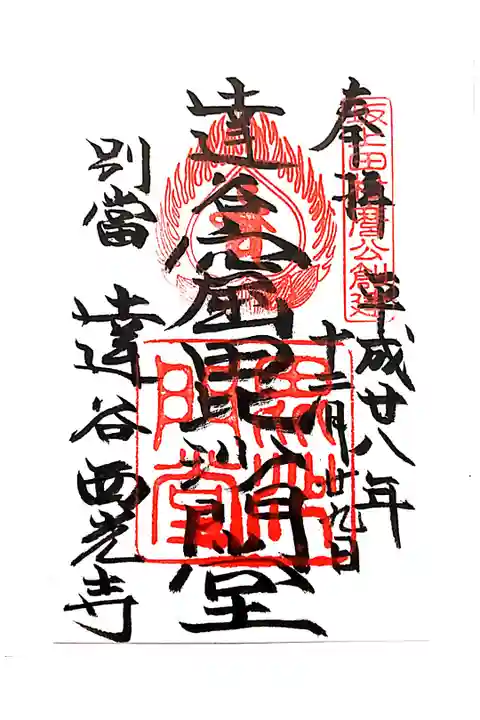 坂上田村麿公創建
奉拝
平成廿八年
十二月廿九日
達谷窟毘沙門堂
毘沙門堂
別當
達谷西光寺